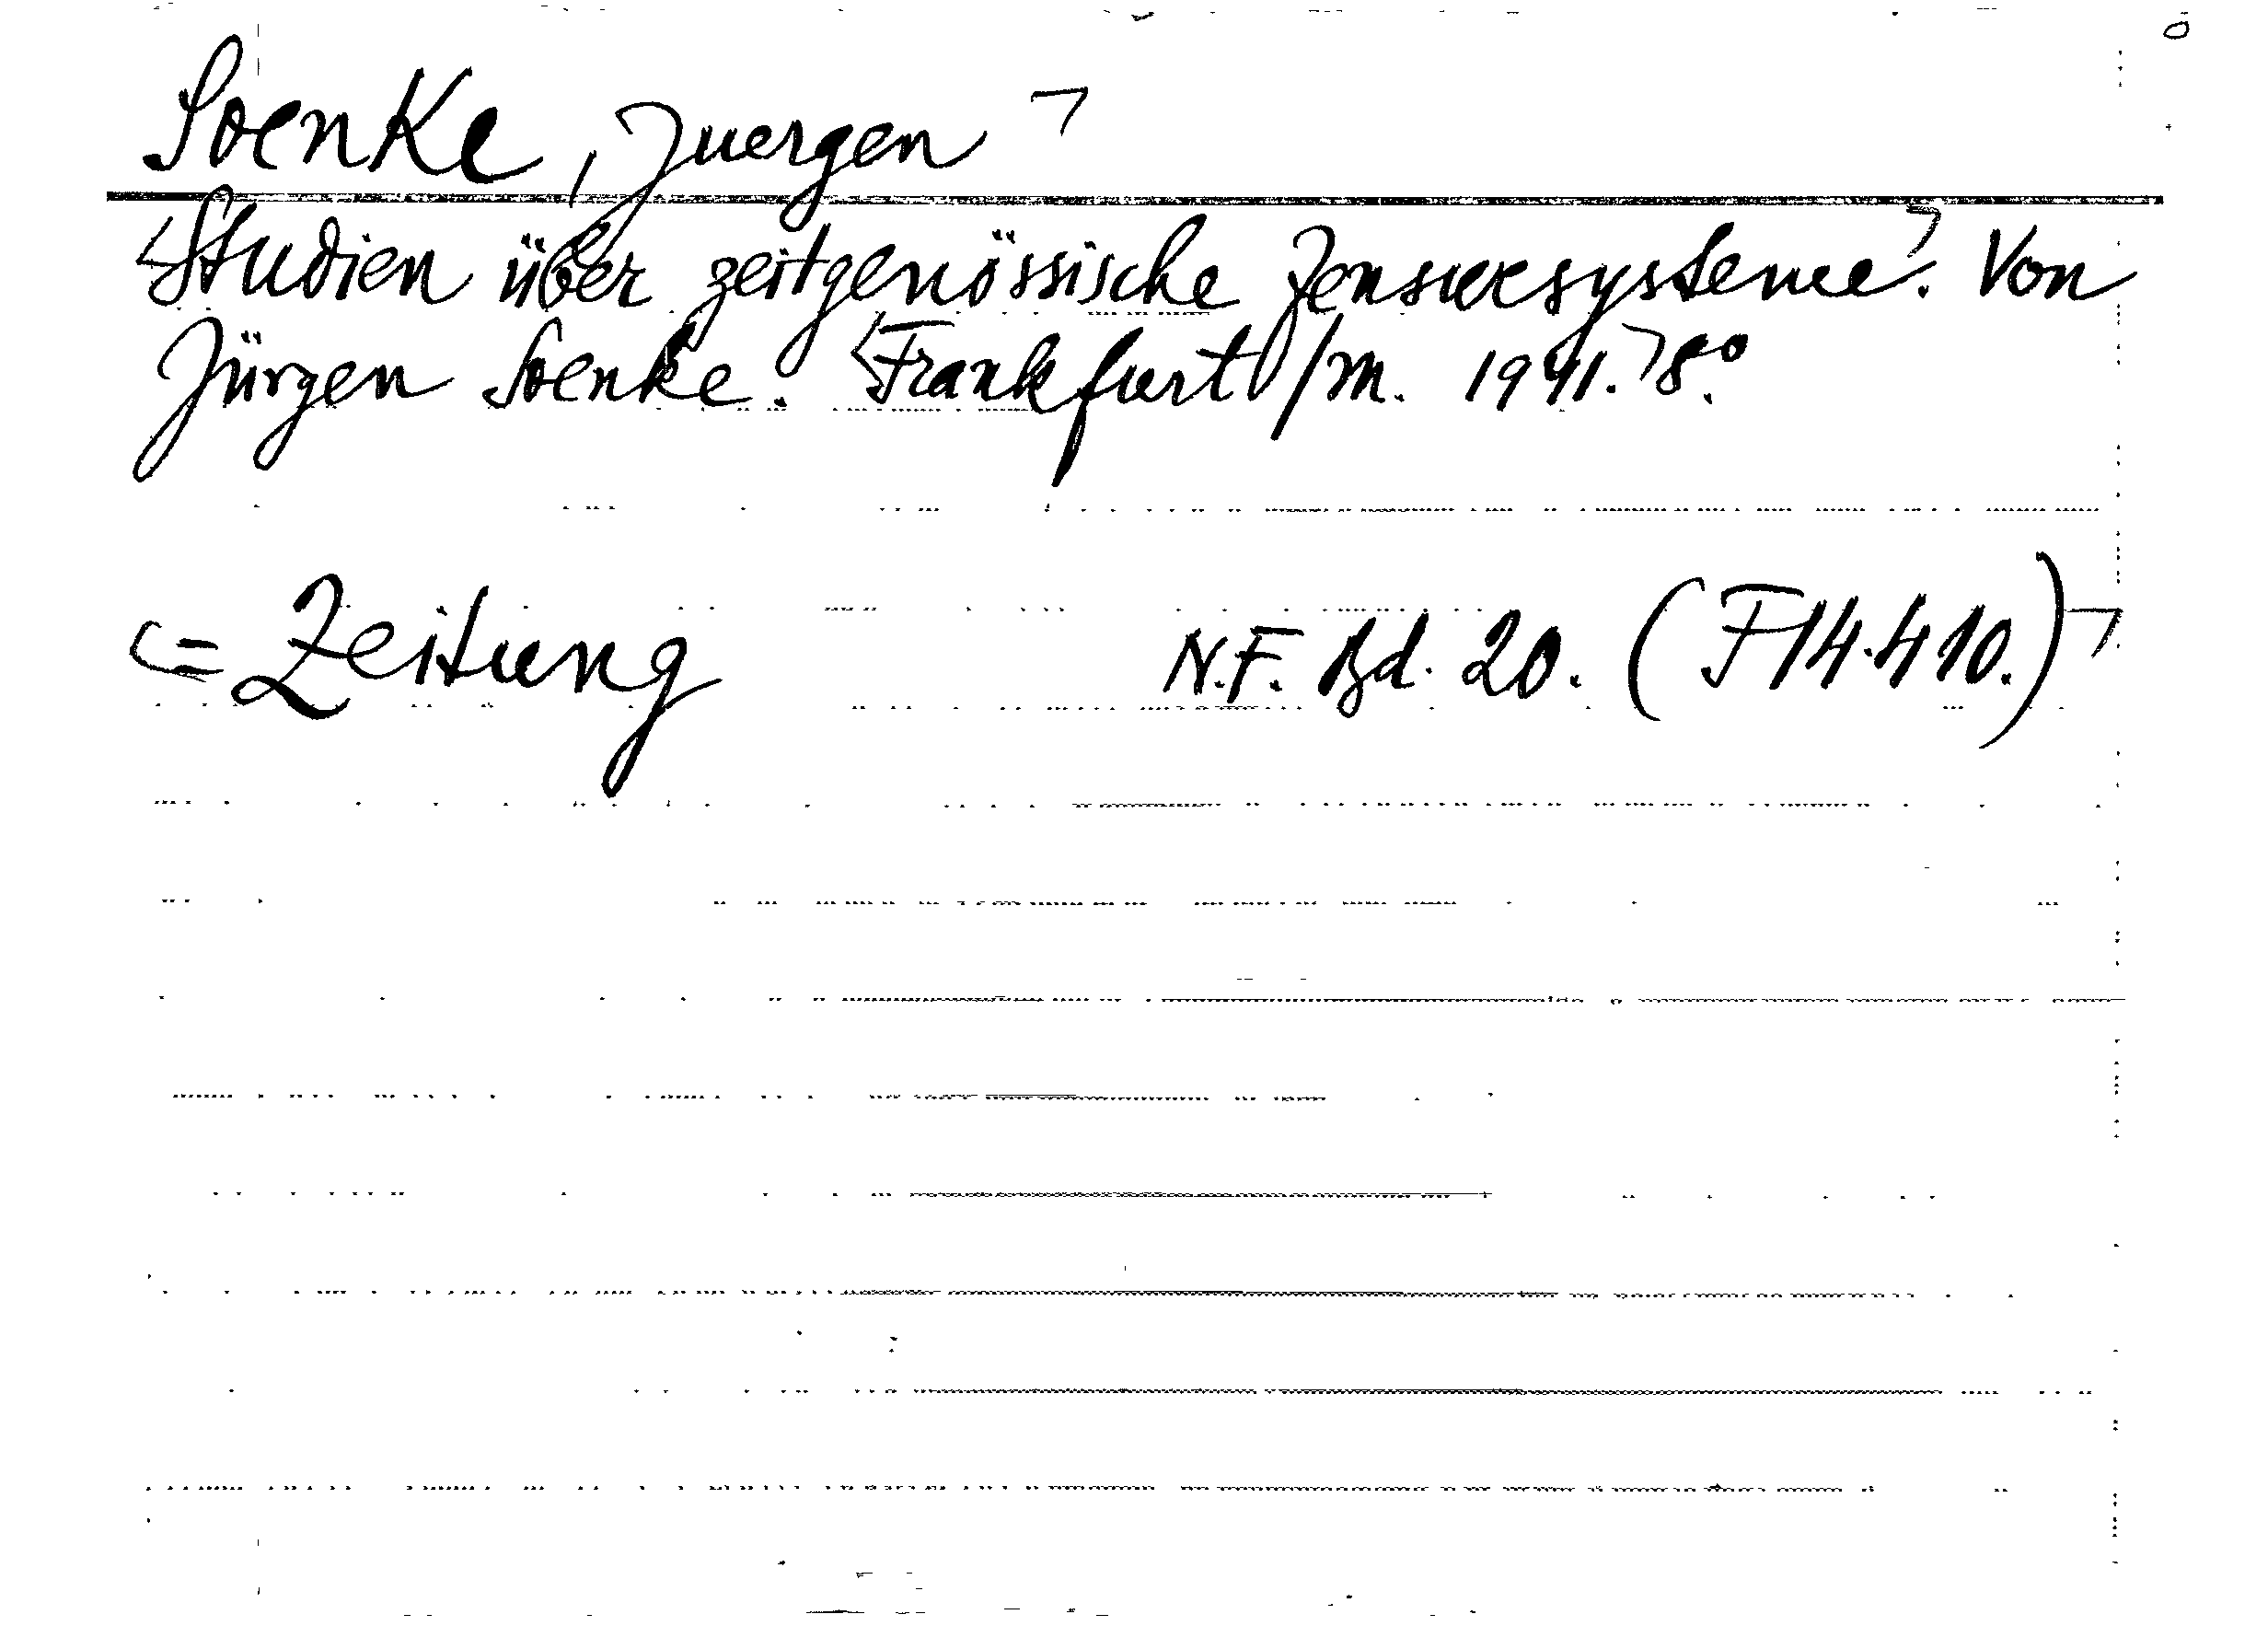 Soenke, Juergen
Studien über zeitgenössische Zensursysteme. Von
Jürgen Soenke. Frankfurt/M. 1941. 8°.
= Zeitung N.F. Bd. 20. (F14.410.)